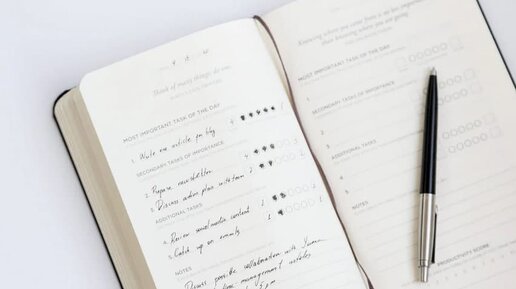 Think of many things; do one.
MOST IMPORTANT TASK OF THE DAY
1. Write one article for blog
SECONDARY TASKS OF IMPORTANCE
2. Prepare newsletter
3. Discuss action plan with team
ADDITIONAL TASKS
4. Review social media content
5. Catch up on emails
NOTES
Discuss possible collaboration with
management
Knowing where you came from is no less important
than knowing where you are going.
MOST IMPORTANT TASK OF THE DAY
1
SECONDARY TASKS OF IMPORTANCE
2
3
ADDITIONAL TASKS
4
5
NOTES
PRODUCTIVITY SCORE